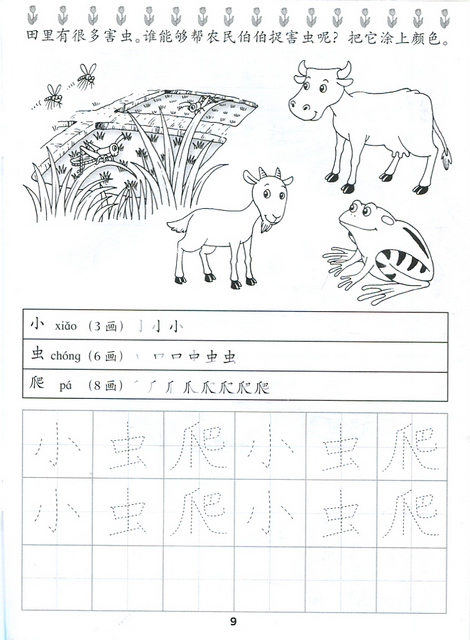 田里有很多害虫。谁能够帮农民伯伯捉害虫呢？把它涂上颜色。
小 xiǎo （3 画）亅 小 小
虫 chóng （6 画）丶 口 口 中 虫 虫
爬 pá （8 画）丿 厂 爪 爪 爬 爬 爬 爬
小 虫 爬 小 虫 爬
小 虫 爬 小 虫 爬
9